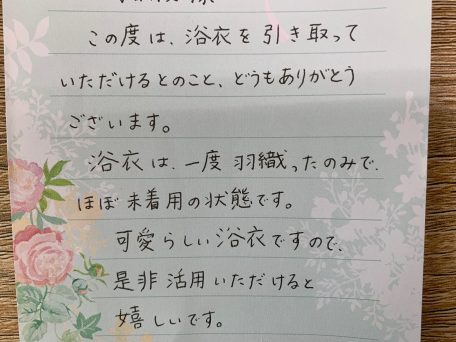 この度は、浴衣を引き取って
いただけるとのこと、どうもありがとう
ございます。
浴衣は、一度羽織ったのみで、
ほぼ未着用の状態です。
可愛らしい浴衣ですので、
是非活用いただけると
嬉しいです。